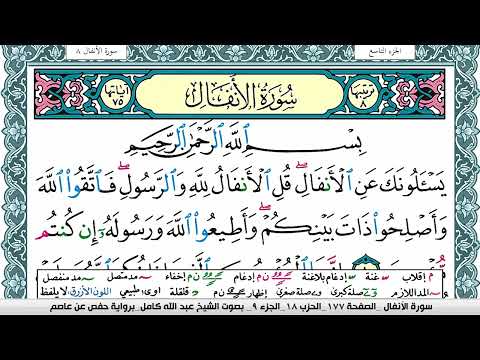 الجزء التاسع
سورة الأنفال ٨
ترتيبها ٨
سُورَةُ الأَنفَالِ
آياتها ٧٥
بِسْمِ ٱللَّهِ ٱلرَّحْمَٰنِ ٱلرَّحِيمِ
يَسْـَٔلُونَكَ عَنِ ٱلْأَنفَالِ ۖ قُلِ ٱلْأَنفَالُ لِلَّهِ وَٱلرَّسُولِ ۖ فَٱتَّقُوا۟ ٱللَّهَ
وَأَصْلِحُوا۟ ذَاتَ بَيْنِكُمْ ۖ وَأَطِيعُوا۟ ٱللَّهَ وَرَسُولَهُۥٓ إِن كُنتُم
م إقلاب غنة إدغام بلاغنة ن م إدغام ن م إخفاء مد متصل مد منفصل
مد اللازم صلة كبرى صلة صغرى إظهار ن م قلقلة اوى: طبيعي اللون الأزرق: لا يلفظ
سورة الأنفال _ الصفحة ١٧٧_ الحزب ١٨_ الجزء ٩_ بصوت الشيخ عبد الله كامل_ برواية حفص عن عاصم